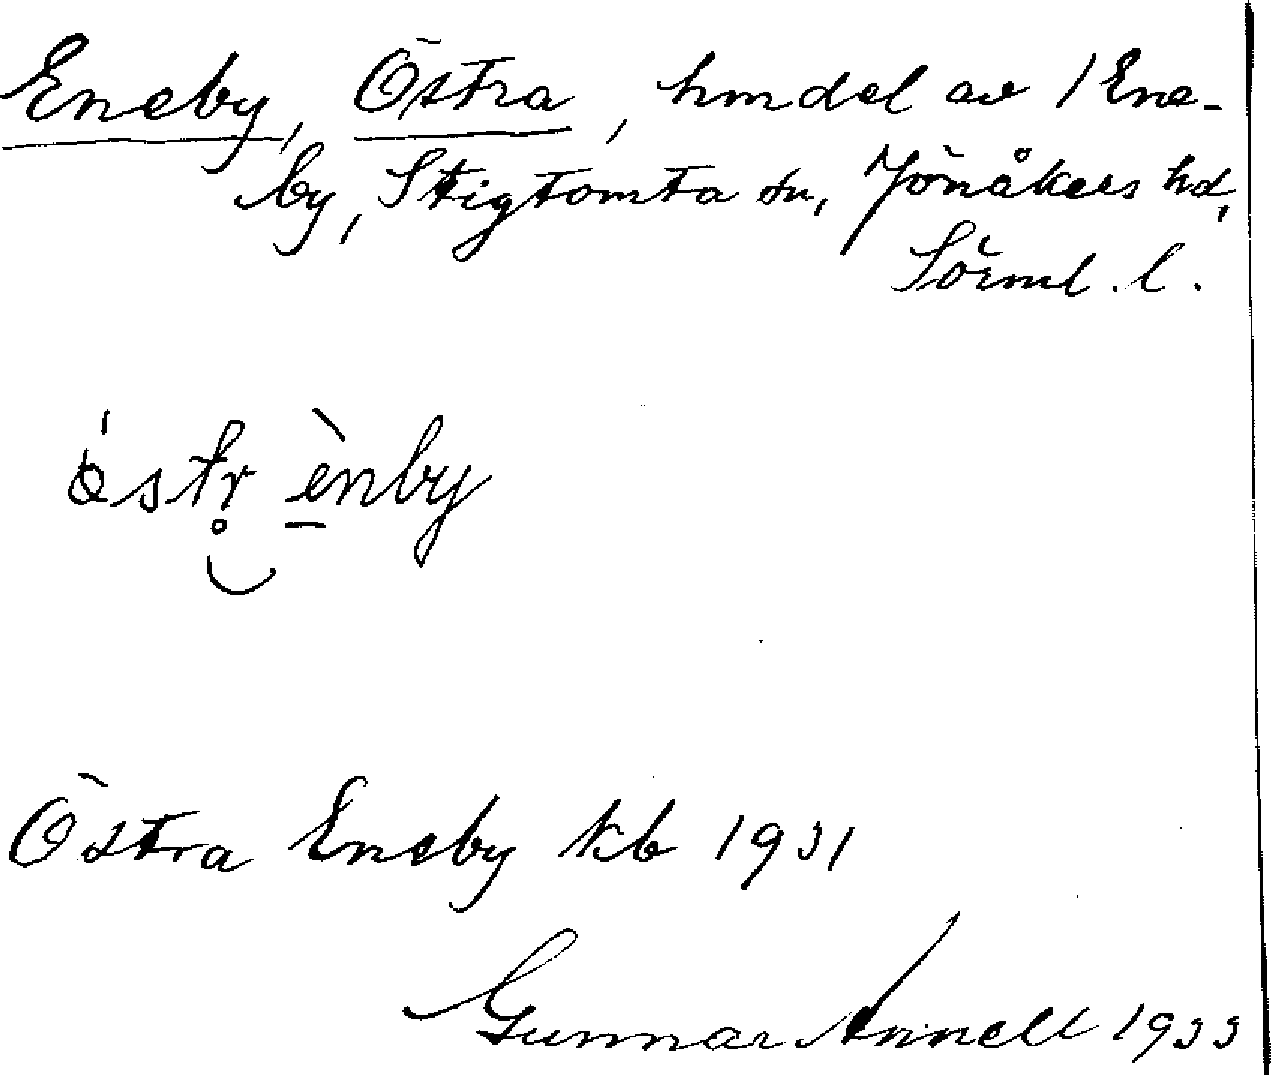 Eneby, Östra, hmdel av 1 Ene-
by, Stigtomta sn, Jönåkers hd,
Sörml. l.
östr̥ ènby
Östra Eneby kb 1931
Gunnar Annell 1933